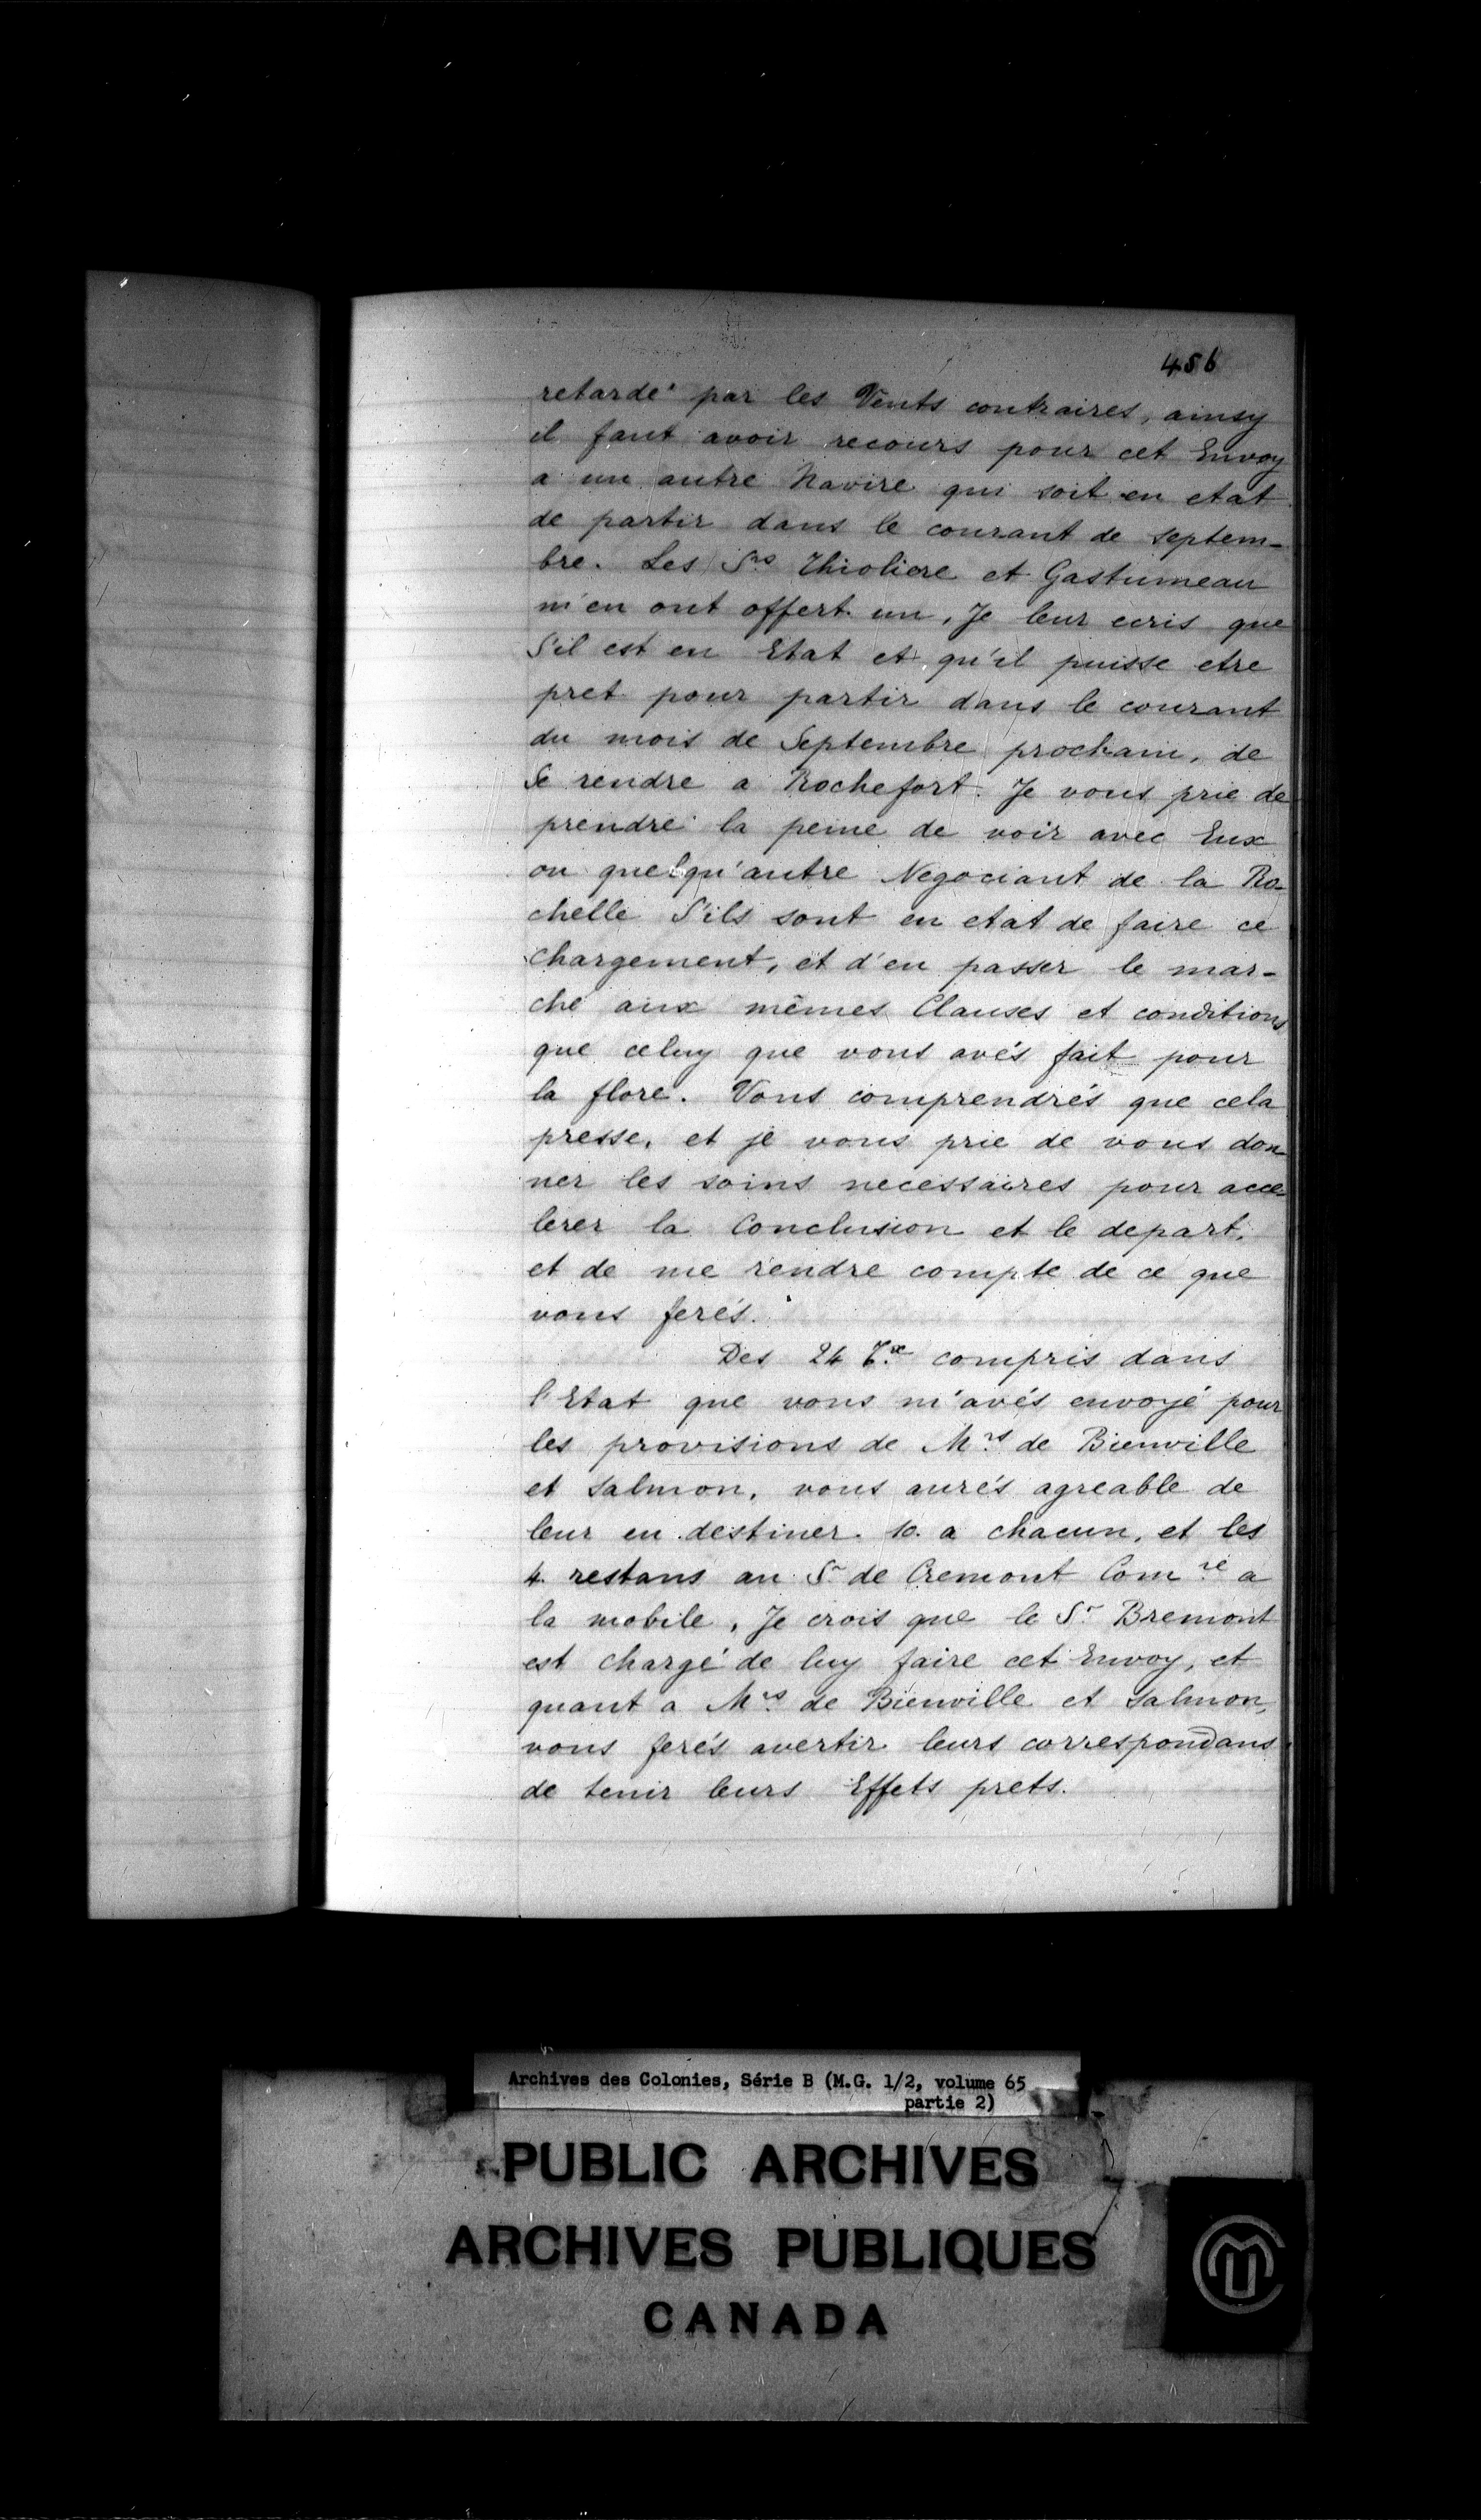 456
retardé par les Vents contraires, ainsy
il faut avoir recours pour cet Envoy
a un autre Navire qui soit en etat
de partir dans le courant de septem-
bre. Les Srs Thioliere et Gastumeau
m'en ont offert un, Je leur ecris que
S'il est en Etat et qu'il puisse etre
pret pour partir dans le courant
du mois de Septembre prochain, de
Se rendre a Rochefort. Je vous prie de
prendre la peine de voir avec Eux
ou quelqu'autre Negociant de la Ro-
chelle S'ils sont en etat de faire ce
chargement, et d'en passer le mar-
ché aux mêmes Clauses et conditions
que celuy que vous avés fait pour
la flore. Vous comprendrés que cela
presse, et je vous prie de vous don-
ner les soins necessaires pour acce-
lerer la Conclusion et le depart,
et de me rendre compte de ce que
vous ferés.
Des 24 Tx compris dans
l'Etat que vous m'avés envoyé pour
les provisions de Mrs de Bienville
et Salmon, vous aurés agreable de
leur en destiner 10. a chacun, et les
4 restans au Sr de Cremont Comre a
la mobile, Je crois que le Sr Bremont
est chargé de luy faire cet Envoy, et
quant a Mrs de Bienville et Salmon,
vous ferés avertir leurs correspondans
de tenir leurs Effets prets.
Archives des Colonies, Série B (M.G. 1/2, volume 65
partie 2)
PUBLIC ARCHIVES
ARCHIVES PUBLIQUES
CANADA